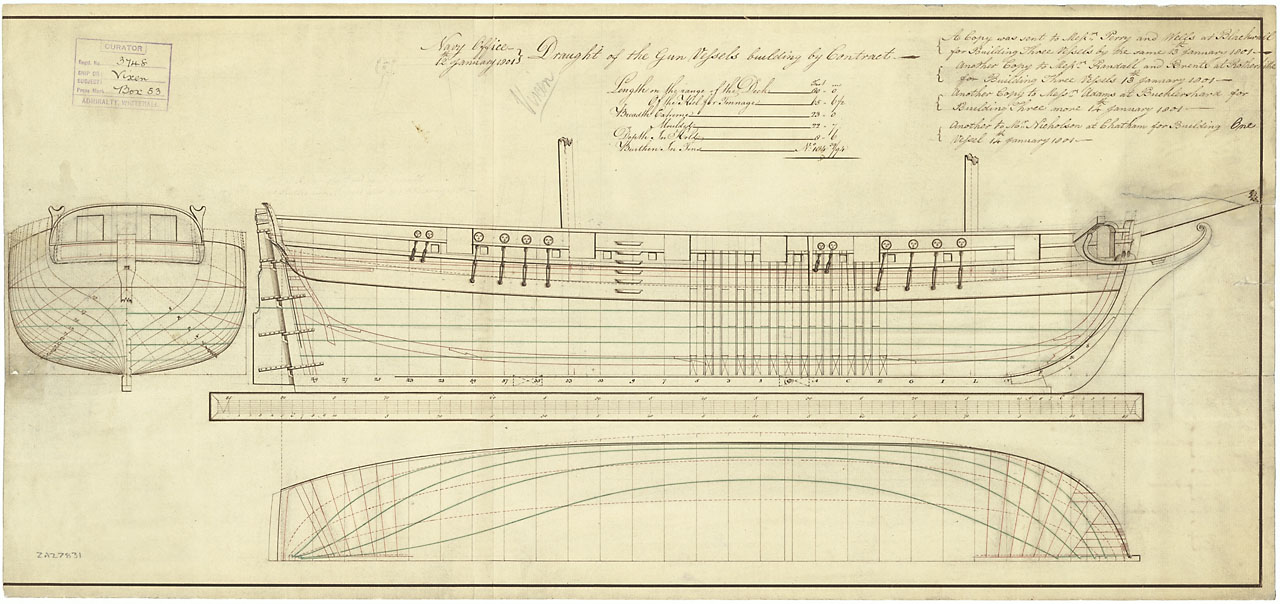 CURATOR
Regd. No. 3748
SHIP OR Vixen
Press Mark Box 53
ADMIRALTY, WHITEHALL
Navy Office
13th January 1801
Draught of the Gun Vessels building by Contract.
Vixen
Length on the range of the Deck 80 - 0
Of the Keel for Tonnage 65 -
Breadth Extreme 23 - 0
Moulded 22 - 7
Depth in Hold 8 - 6
Burthen In Tons No.
A Copy was sent to Messrs. Perry and Wells at Blackwall
for Building Three Vessels by the same 13th January 1801
Another Copy to Messrs. Randall and Brents at Rotherhithe
for Building Three Vessels 13th January 1801
Another Copy to Messrs. Adams at Bucklershard for
Building Three more 14th January 1801
Another to Mr. Nicholson at Chatham for Building One
Vessel 14th January 1801
ZAZ7831